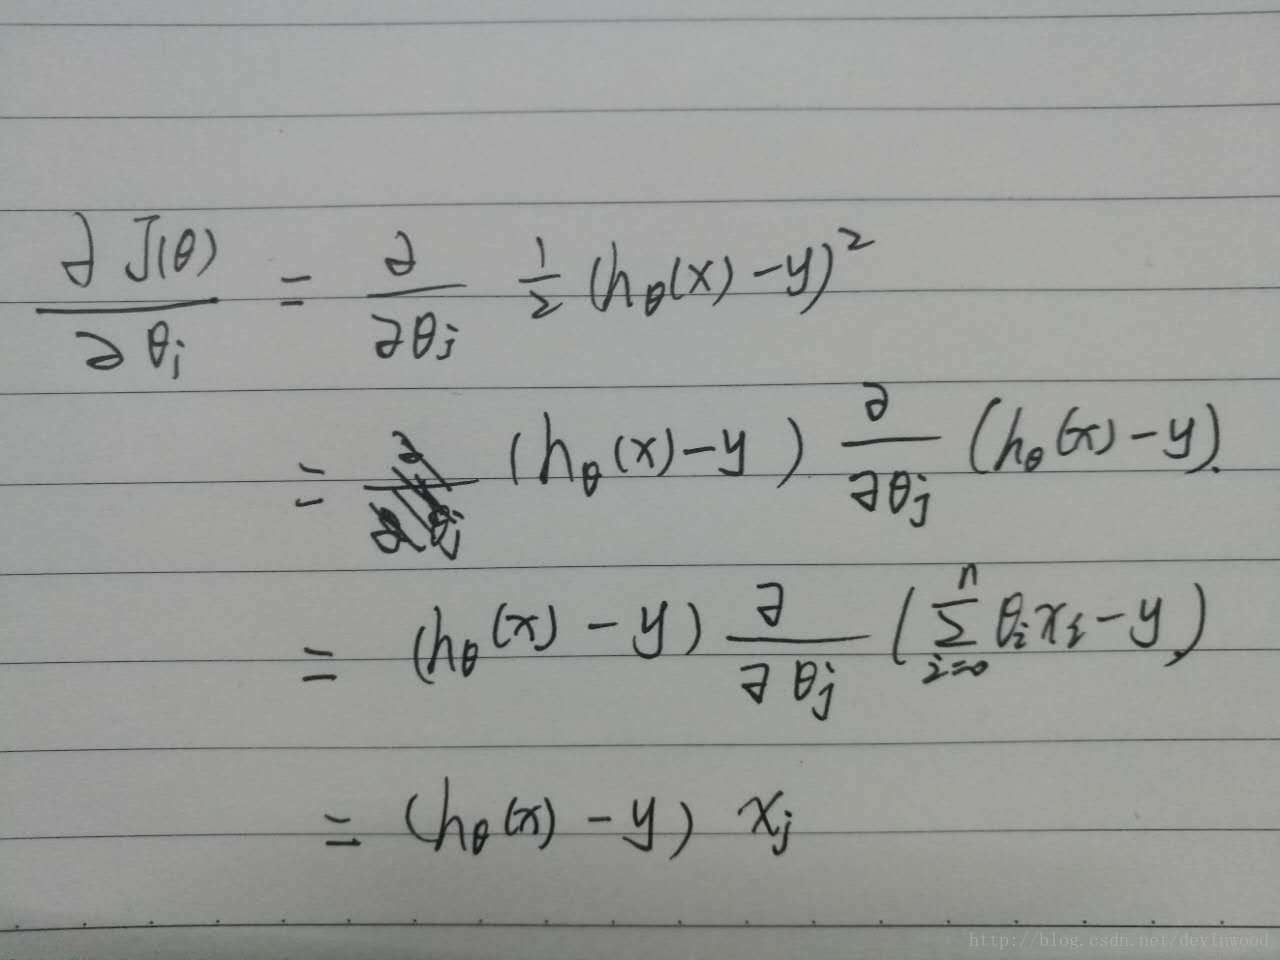 ∂J(θ)/∂θj = ∂/∂θj 1/2 (hθ(x) - y)²
= (hθ(x) - y) ∂/∂θj (hθ(x) - y).
= (hθ(x) - y) ∂/∂θj (∑_{i=0}^{n} θi xi - y)
= (hθ(x) - y) xj
http://blog.csdn.net/devinwood